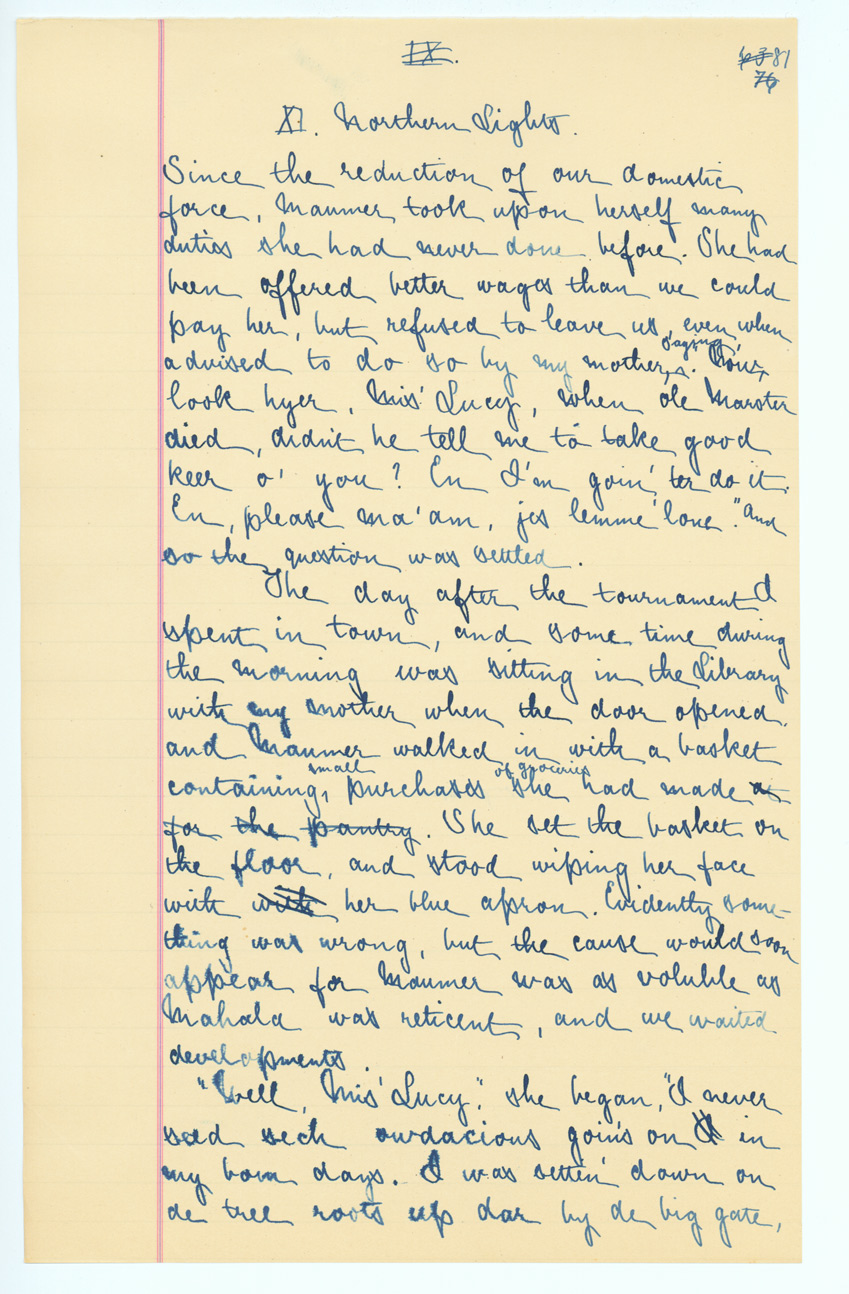 IX.
81
76
XI. Northern Lights.
Since the reduction of our domestic
force, Maumer took upon herself many
duties she had never done before. She had
been offered better wages than we could
pay her, but refused to leave us, even when
advised to do so by my mother, saying, "Now,
look hyer, Mis' Lucy, when ole Marster
died, didn't he tell me to take good
keer o' you? En I'm goin' ter do it.
En, please ma'am, jes lemme 'lone." And
so the question was settled.
The day after the tournament I
spent in town, and some time during
the morning was sitting in the Library
with my mother when the door opened,
and Maumer walked in with a basket
containing small purchases of groceries she had made at
for the pantry. She set the basket on
the floor, and stood wiping her face
with with her blue apron. Evidently some-
thing was wrong, but the cause would soon
appear for Maumer was as voluble as
Mahala was reticent, and we waited
developments.
"Well, Mis' Lucy," she began, "I never
seed sech owdacious goin's on in
my born days. I was settin' down on
de tree roots up dar by de big gate,